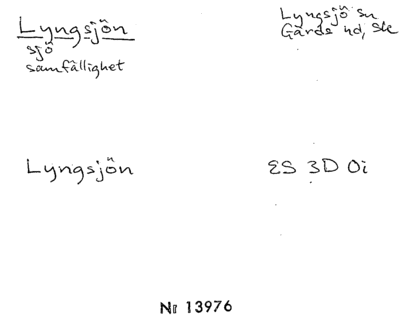 Lyngsjön
sjö
samfällighet
Lyngsjö sn
Gärds hd, Skå
Lyngsjön
ES 3D 0i
Nr 13976